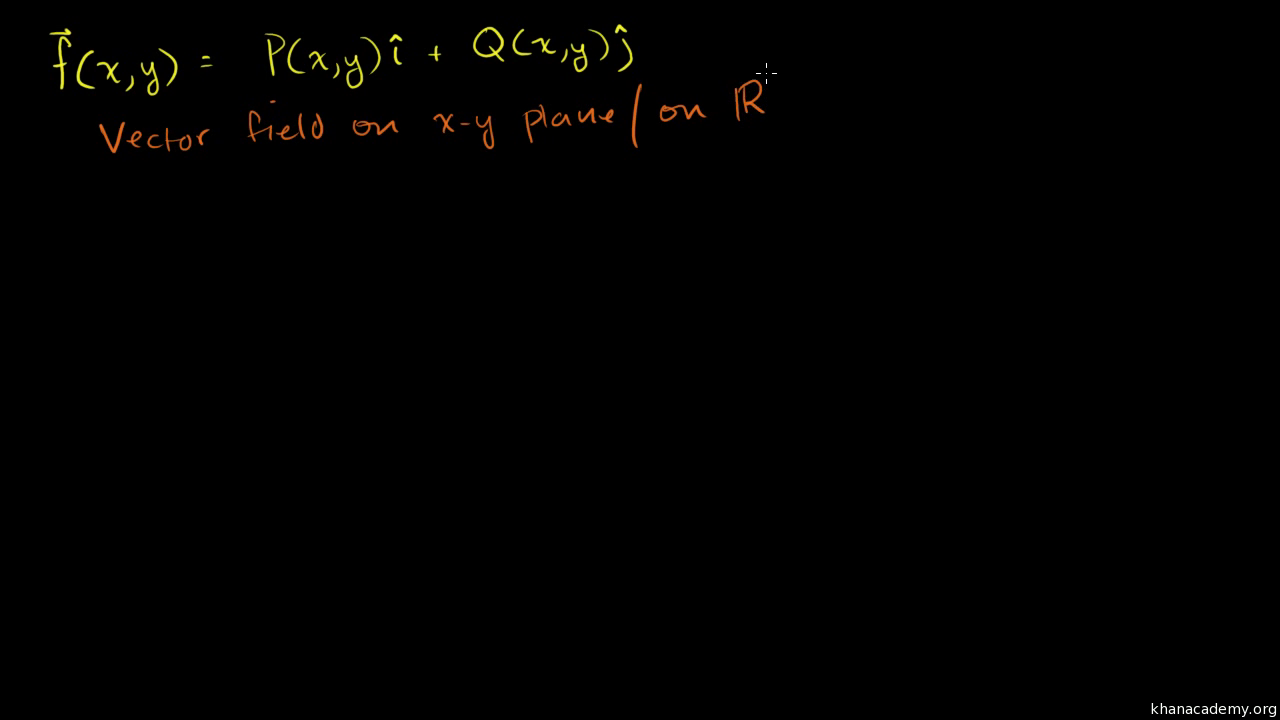 f⃗(x,y) = P(x,y)î + Q(x,y)ĵ
Vector field on x-y plane / on ℝ
khanacademy.org